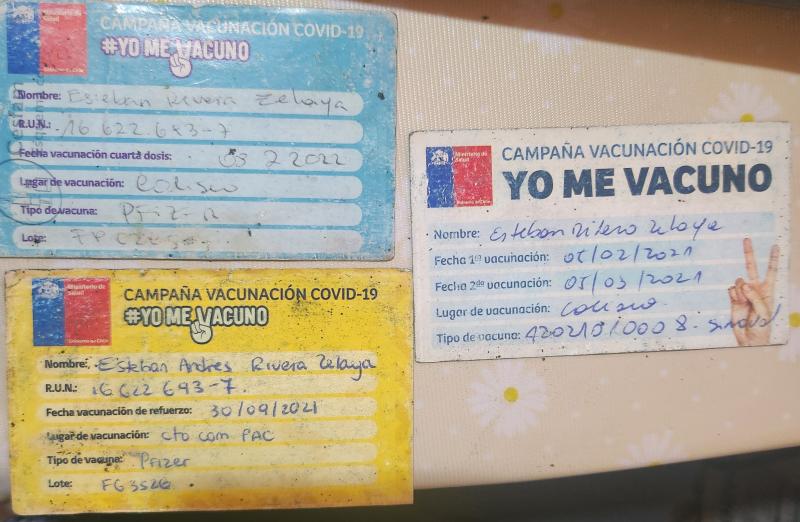 Ministerio de Salud
Gobierno de Chile
CAMPAÑA VACUNACIÓN COVID-19
#YO ME VACUNO
Nombre: Esteban Rivera Zelaya
R.U.N.: 16 622.693-7
Fecha vacunación cuarta dosis: 03 2 2022
Lugar de vacunación: Coliseo
Tipo de vacuna: Pfizer
Lote:
Ministerio de Salud
Gobierno de Chile
CAMPAÑA VACUNACIÓN COVID-19
#YO ME VACUNO
Nombre: Esteban Andres Rivera Zelaya
R.U.N.: 16 622 693-7
Fecha vacunación de refuerzo: 30/09/2021
Lugar de vacunación: cto com PAC
Tipo de vacuna: Pfizer
Lote: FG3526
Ministerio de Salud
Gobierno de Chile
CAMPAÑA VACUNACIÓN COVID-19
YO ME VACUNO
Nombre: Esteban Rivera Zelaya
Fecha 1ra vacunación: 05/02/2021
Fecha 2da vacunación: 05/03/2021
Lugar de vacunación: Coliseo
Tipo de vacuna: A2021010008 - Sinovac